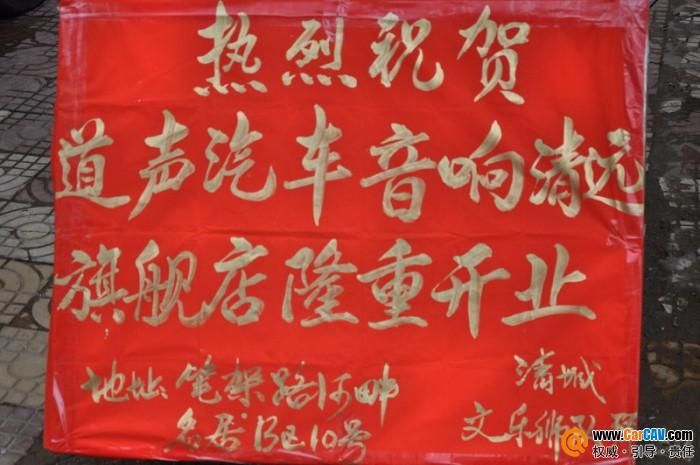 热烈祝贺
道声汽车音响清远
旗舰店隆重开业
地址:笔架路河畔
名居B区10号
清城
文乐狮
www.CarCAV.com
权威·引导·责任